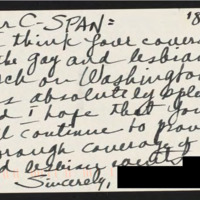 r C-SPAN= 18
think your covera
the gay and lesbia
rch on Washington
s absolutely sple
d I hope that you
ll continue to prov
rough coverage of
d lesbian events
Sincerely,